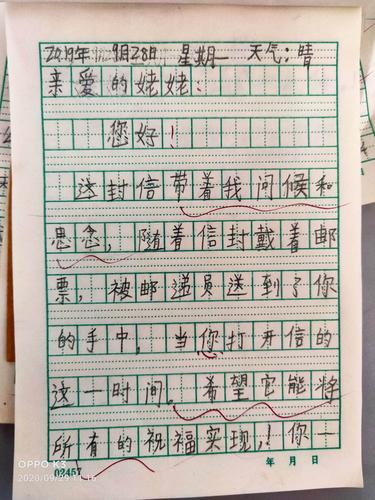 2019年9月28日 星期一 天气：晴
亲爱的姥姥：
您好！
这封信带着我问候和
思念，随着信封戴着邮
票，被邮递员送到了你
的手中，当你打开信的
这一时间。希望它能将
所有的祝福实现，！你一
03457 年 月 日
OPPO K3
2020/09/29 11:16